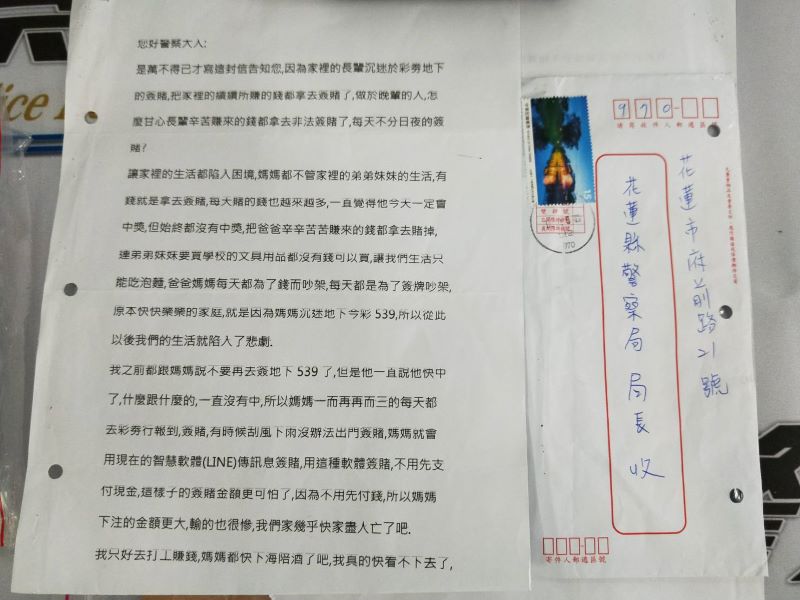 您好警察大人:
是萬不得已才寫這封信告知您,因為家裡的長輩沉迷於彩券地下
的簽賭,把家裡的積蓄所賺的錢都拿去簽賭了,做於晚輩的人,怎
麼甘心長輩辛苦賺來的錢都拿去非法簽賭了,每天不分日夜的簽
賭?
讓家裡的生活都陷入困境,媽媽都不管家裡的弟弟妹妹的生活,有
錢就是拿去簽賭,每天賭的錢也越來越多,一直覺得他今天一定會
中獎,但始終都沒有中獎,把爸爸辛辛苦苦賺來的錢都拿去賭掉,
連弟弟妹妹要買學校的文具用品都沒有錢可以買,讓我們生活只
能吃泡麵,爸爸媽媽每天都為了錢而吵架,每天都是為了簽牌吵架,
原本快快樂樂的家庭,就是因為媽媽沉迷地下今彩 539,所以從此
以後我們的生活就陷入了悲劇.
我之前都跟媽媽說不要再去簽地下 539 了,但是他一直說他快中
了,什麼跟什麼的,一直沒有中,所以媽媽一而再再而三的每天都
去彩券行報到,簽賭,有時候刮風下雨沒辦法出門簽賭,媽媽就會
用現在的智慧軟體(LINE)傳訊息簽賭,用這種軟體簽賭,不用先支
付現金,這樣子的簽賭金額更可怕了,因為不用先付錢,所以媽媽
下注的金額更大,輸的也很慘,我們家幾乎快家盡人亡了吧.
我只好去打工賺錢,媽媽都快下海陪酒了吧,我真的快看不下去了,
970-
請寫收件人郵遞區號
花蓮市府前路21號
花蓮縣警察局 局長 收
15
970
寄件人郵遞區號
ice